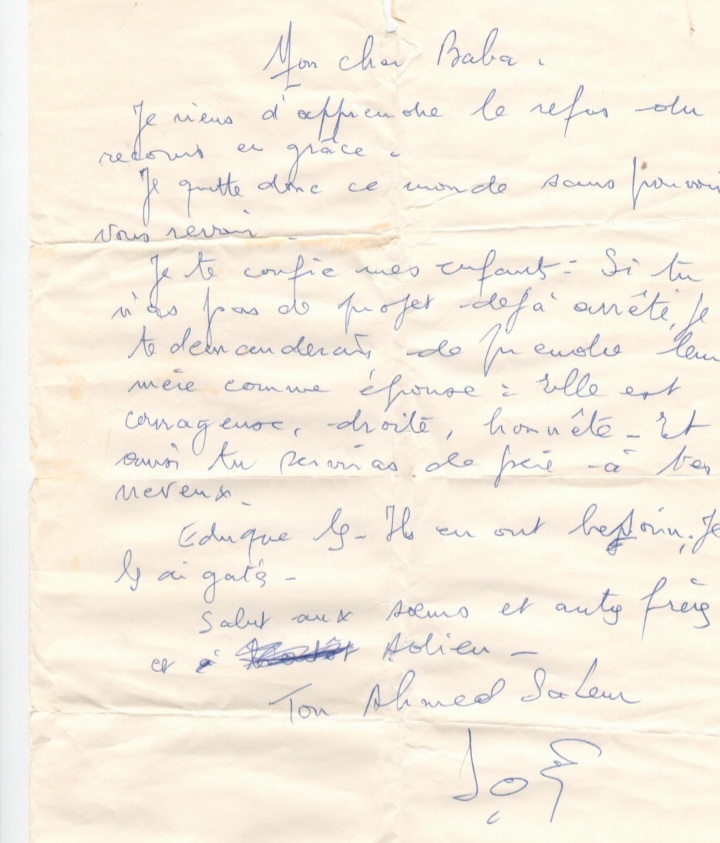 Mon cher Baba.
Je viens d'apprendre le refus du
recours en grâce.
Je quitte donc ce monde sans pouvoir
vous revoir.
Je te confie mes enfants. Si tu
n'as pas de projet déjà arrêté, je
te demanderais de prendre leur
mère comme épouse : Elle est
courageuse, droite, honnête - Et
ainsi tu serviras de père à tes
neveux.
Eduque les - Ils en ont besoin. Je
les ai gatés -
Salut aux sœurs et autres frères
et à Adieu -
Ton Ahmed Salem